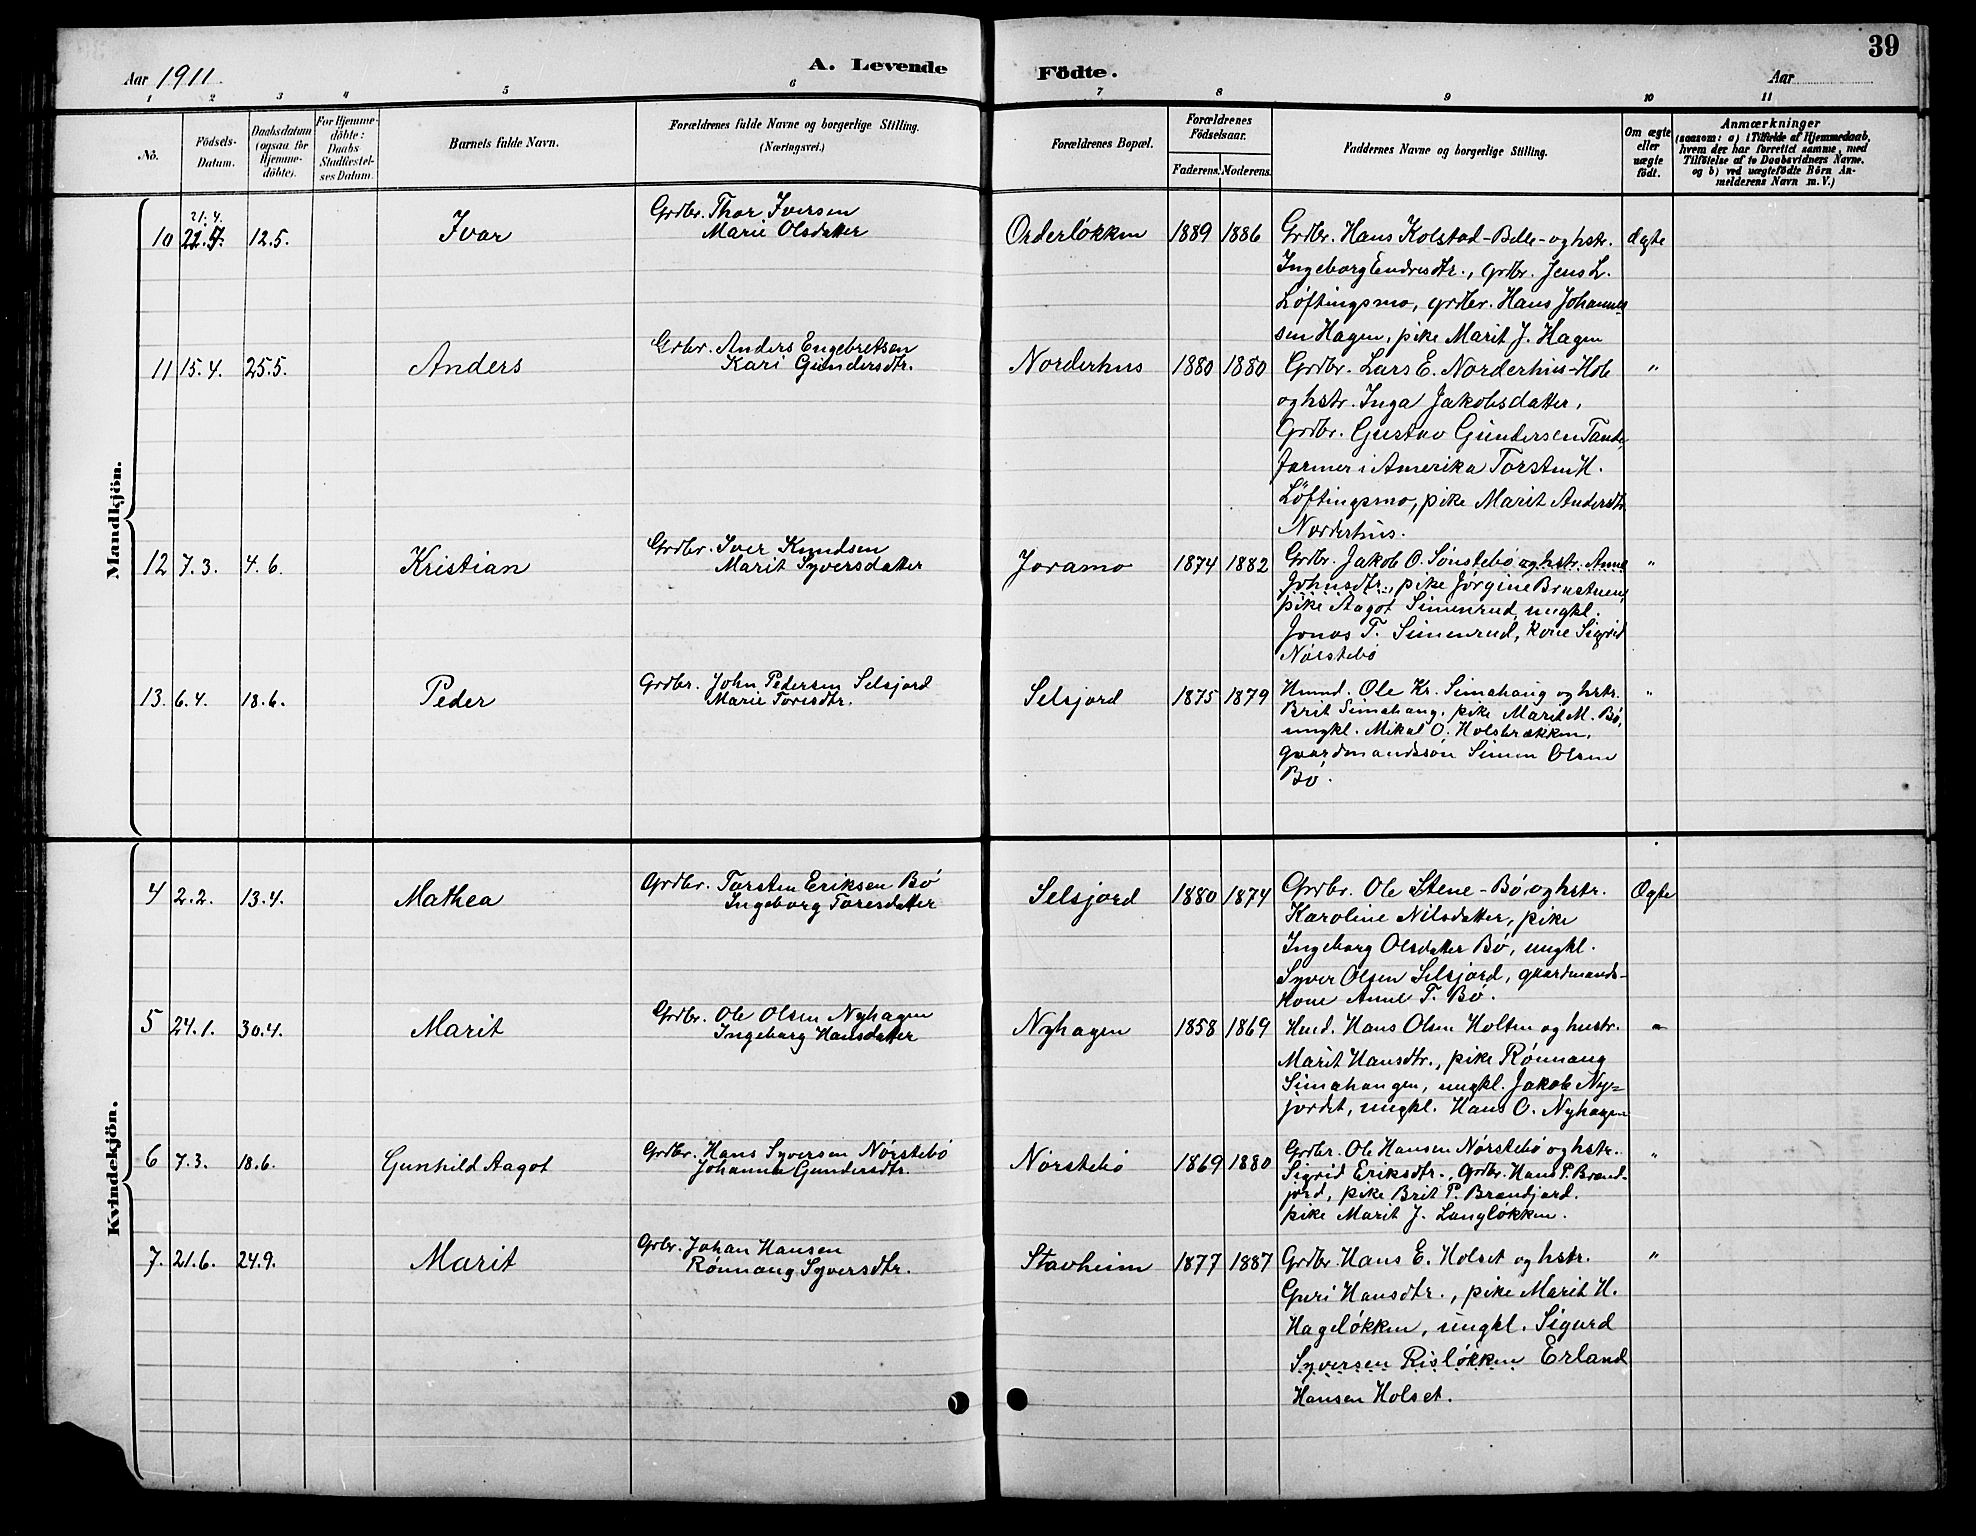 39
Aar 1911.
A. Levende Födte.
Aar
1 2 3 4 5 6 7 8 9 10 11
No.
Födsels-Datum.
Daabsdatum (ogsaa for Hjemme-döbte).
For Hjemme-döbte: Daabs Stadfæstel-ses Datum.
Barnets fulde Navn.
Forældrenes fulde Navne og borgerlige Stilling. (Næringsvei.)
Forældrenes Bopæl.
Forældrenes Födselsaar.
Faderens. Moderens.
Faddernes Navne og borgerlige Stilling.
Om ægte eller uægte födt.
Anmærkninger
(saasom: a) i Tilfælde af Hjemmedaab,
hvem der har forrettet samme, med
Tilföielse af to Daabsvidners Navne.
og b) ved uægtefödte Börn An-
melderens Navn m. V.)
Mandkjön.
21.4.
10 12.5. Ivar
Grdbr. Thor Iversen
Marie Olsdatter
Orderløkken 1889 1886
Grdbr. Hans Kolstad-Belle-og hstr.
Ingeborg Endresdtr., grdbr. Jens L.
Løftingsmo, grdbr. Hans Johannes
sen Hagen, pike Marit J. Hagen
ægte
11 15.4. 25.5. Anders
Grbr. Anders Engebretsen
Kari Gundersdtr.
Norderhus 1880 1880
Grdbr. Lars E. Norderhus-Hole
og hstr. Inga Jakobsdatter,
Grdbr. Gustav Gundersen Tande,
farmer i Amerika Torsten H.
Løftingsmo, pike Marit Andersdtr.
Norderhus.
"
12 7.3. 4.6. Kristian
Grdbr. Iver Knudsen
Marit Syversdatter
Joramo 1874 1882
Grdbr. Jakob O. Sønstebø og hstr. Anne
Johnsdtr., pike Jørgine Brustuen,
pike Aagot Simenrud, ungkl.
Jonas T. Simenrud, kone Sigrid
Nørstebø
"
13. 6.4. 18.6. Peder
Grdbr. John Pedersen Selsjord
Marie Toresdtr.
Selsjord 1875 1879
Hmnd. Ole Kr. Simahaug og hstr.
Brit Simahaug, pike Marit M. Bø,
ungkl. Mikal O. Holsbrækken,
gaardmandssøn Simen Olsen
Bø.
"
Kvindekjön.
4 2.2. 13.4. Mathea
Grdbr. Torsten Eriksen Bø
Ingeborg Toresdatter
Selsjord 1880 1874
Grdbr. Ole Stene-Bø og hstr.
Karoline Nilsdatter, pike
Ingeborg Olsdatter Bø, ungkl.
Syver Olsen Selsjord, gaardmands-
kone Anne T. Bø.
Ægte
5 24.1. 30.4. Marit
Grdbr. Ole Olsen Nyhagen
Ingeborg Hansdatter
Nyhagen 1858 1869
Hmd. Hans Olsen Holten og hustr.
Marit Hansdtr., pike Rønnaug
Simahaugen, ungkl. Jakob Ny=
jordet, ungkl. Hans O. Nyhagen
"
6 7.3. 18.6. Gunhild Aagot
Grdbr. Hans Syversen Nørstebø
Johanne Gundersdtr.
Nørstebø 1869 1880
Grdbr. Ole Hansen Nørstebø og hstr.
Sigrid Eriksdtr., Grdbr. Hans P. Brænd-
jord, pike Brit P. Brændjord.
pike Marit J. Langløkken.
"
7. 21.6. 24.9. Marit
Grbr. Johan Hansen
Rønnaug Syversdtr.
Stavheim 1877 1887
Grdbr. Hans E. Holset og hstr.
Guri Hansdtr., pike Marit H.
Hageløkken, ungkl. Sigurd
Syversen Risløkken Erland
Hansen Holset.
"